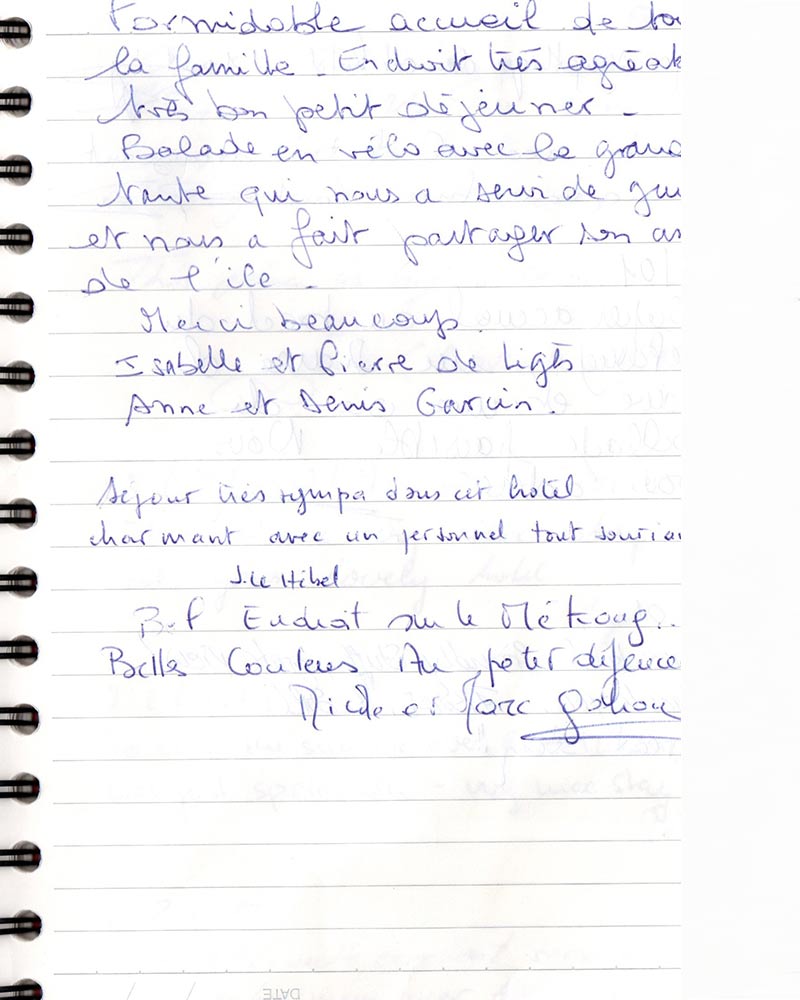 Formidable accueil de to
la famille - Endroit très agréab
très bon petit déjeuner -
Balade en vélo avec le grand
tante qui nous a servi de gui
et nous a fait partager son a
de l'île -
Merci beaucoup.
Isabelle et Pierre de
Anne et Denis Garcin.
Séjour très sympa dans cet hôtel
charmant avec un personnel tout sourian
J. Le Hibel
Endroit sur le Mékong..
Belles Couleurs Au peter déjeune
et Marc
DATE